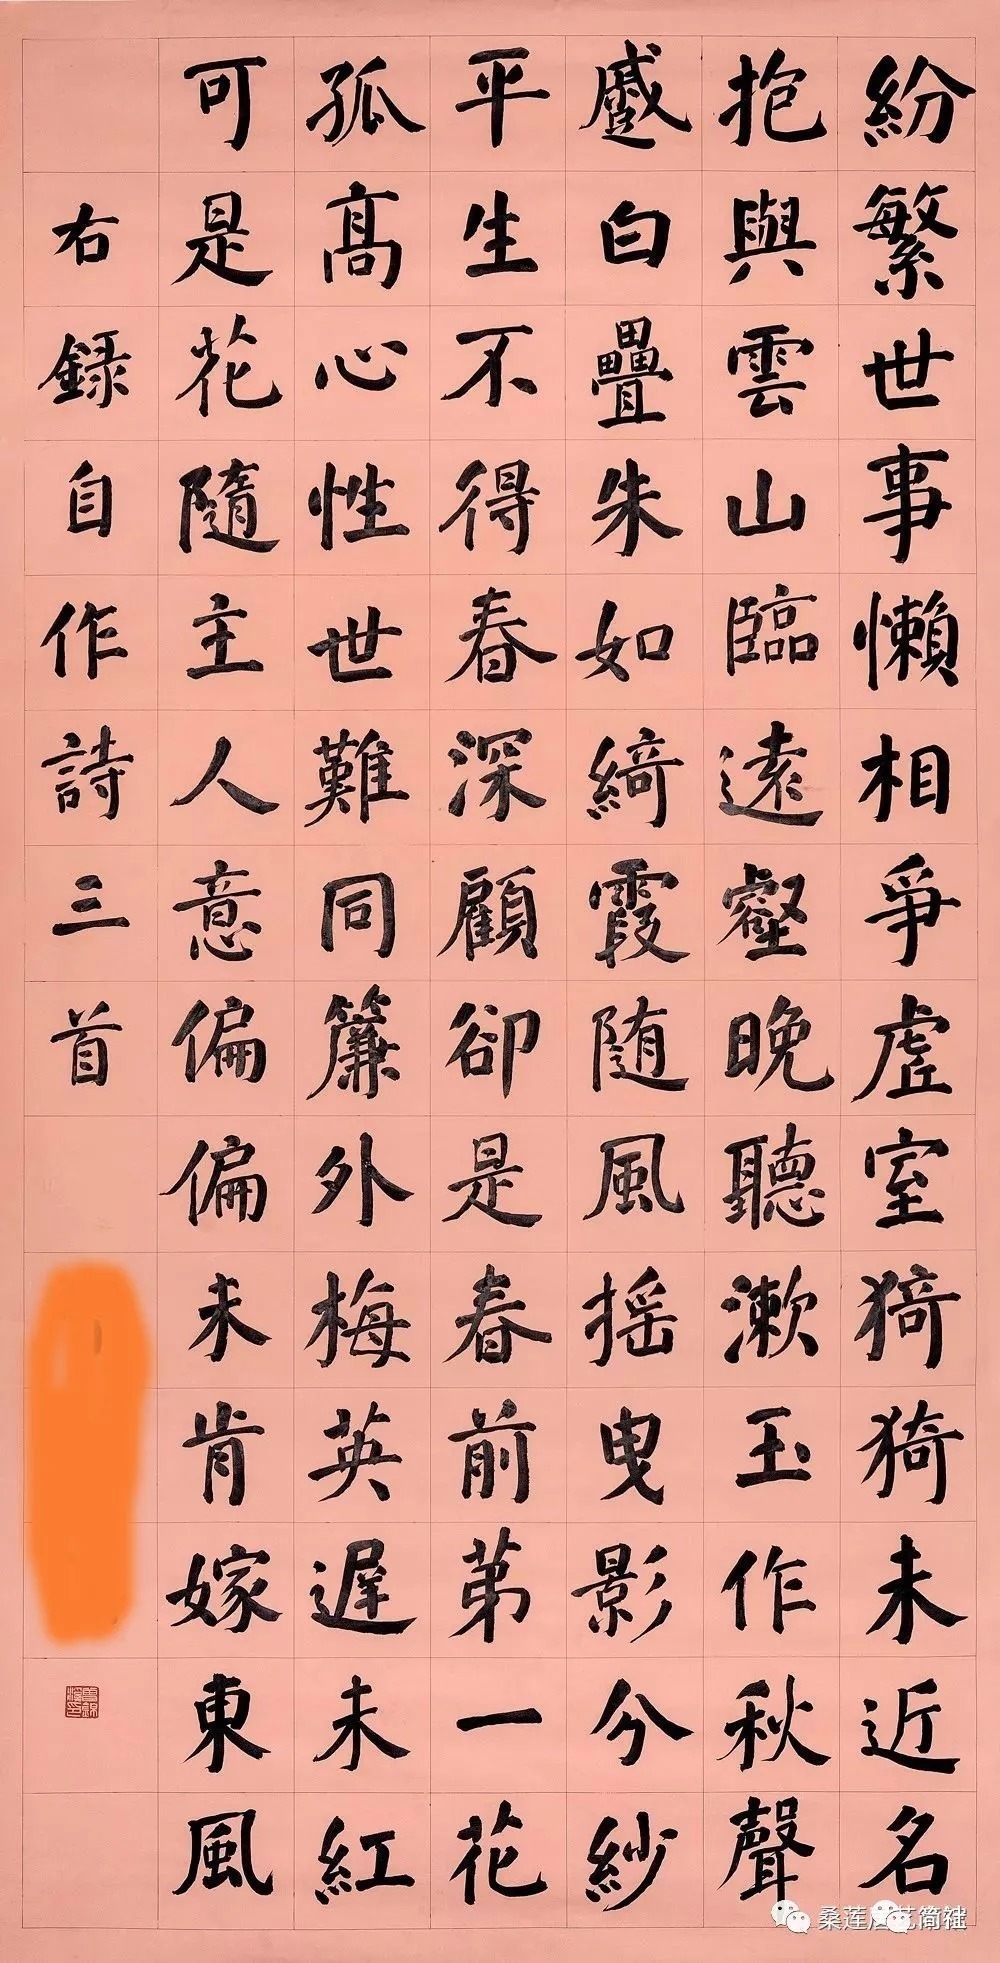 紛繁世事懶相爭虛室猗猗未近名
抱與雲山臨遠壑晚聽漱玉作秋聲
蹙白疊朱如綺霞随風摇曳影分紗
平生不得春深顧卻是春前苐一花
孤高心性世難同簾外梅英遲未紅
可是花隨主人意偏偏未肯嫁東風
右録自作詩三首
桑莲居艺